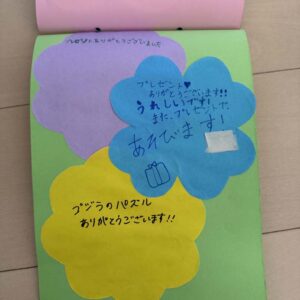 ありがとうございました
プレゼント♥
ありがとうございます!!
うれしいです!
また、プレゼントで
あそびます!
プヅラのパズル
ありがとうございます!!